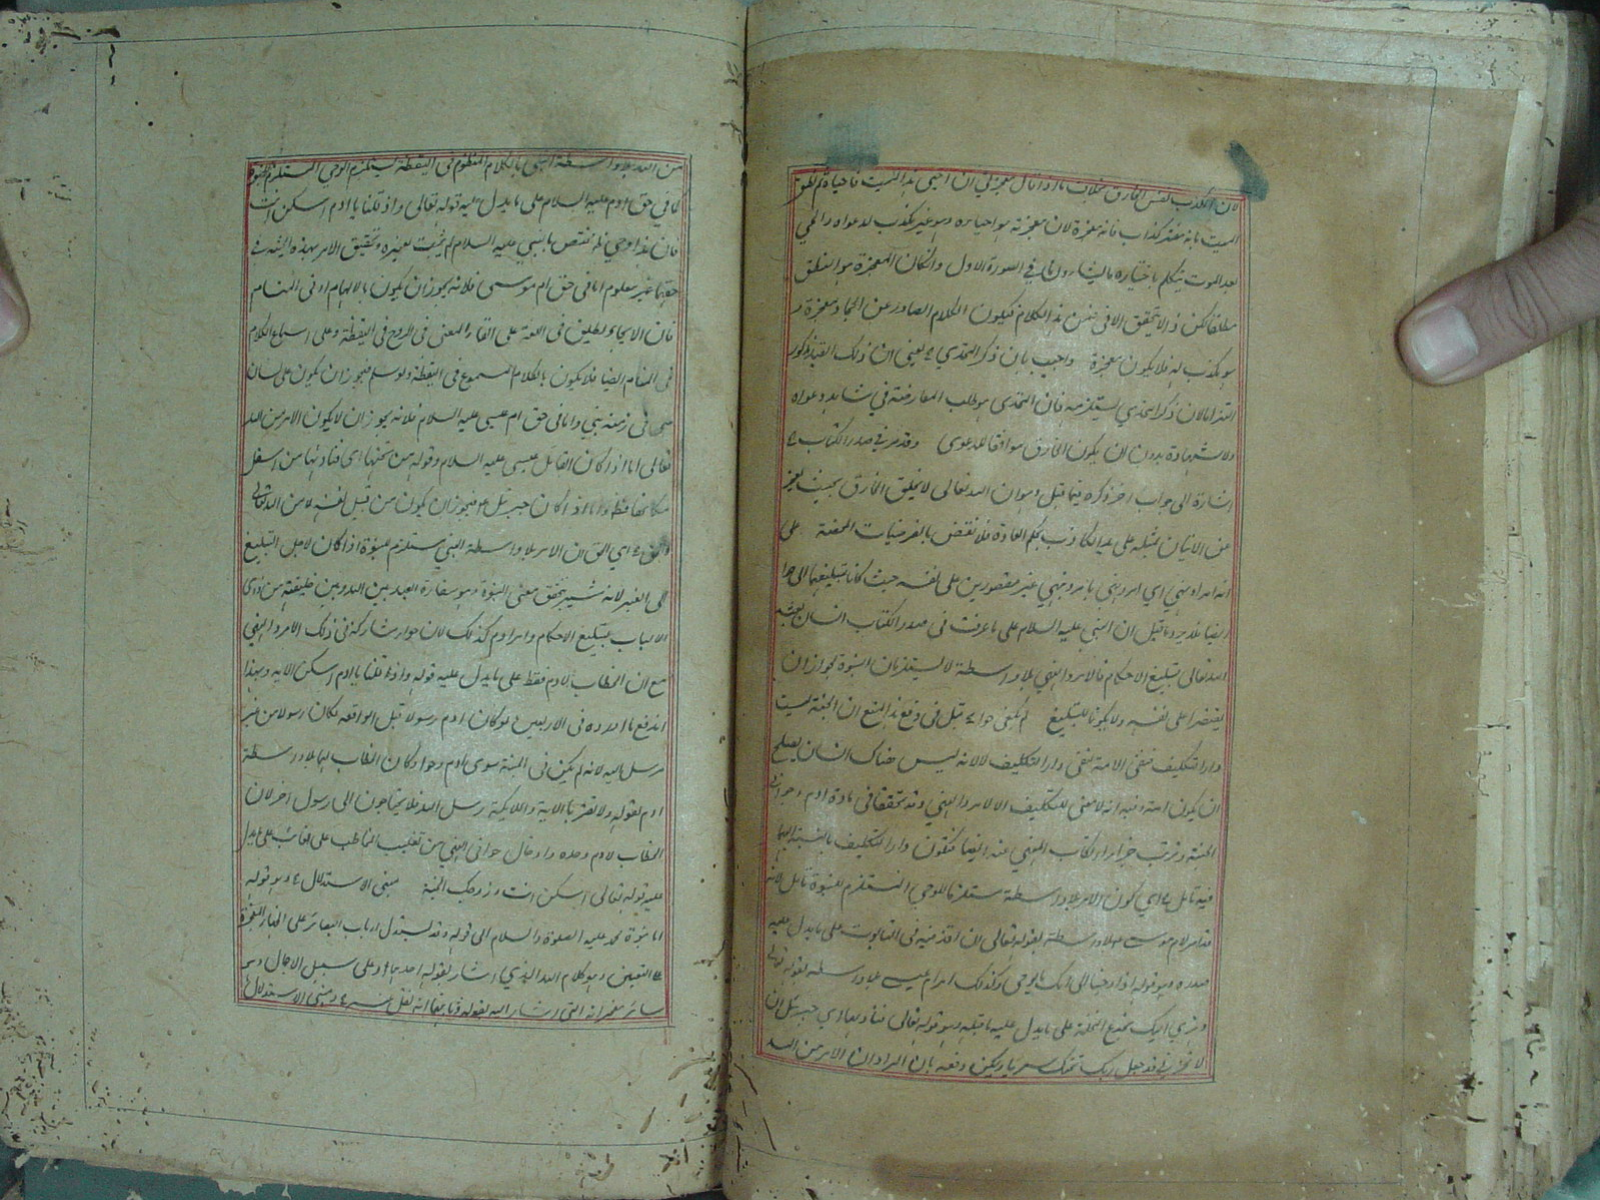 لان الكذب نفس الخارق بخلاف ما اذا قال معجزتي ان احيي هذا الميت فاحياه ثم نطق
الميت بانه مفتر كذاب فانه معجزة لان معجزته هو احياءه وهو غير مكذب لدعواه والحي
بعد الموت يتكلم باختياره ما يشاء في الصورة الاولى وان كان المعجزة هو النطق
مطلقا لكن لا يتحقق الا في ضمن هذا الكلام فيكون الكلام الصادر عن الجماد معجزة و
هو مكذب له فلا يكون معجزة واجيب بان ذكر التحدي يعني ان ذلك القيد مذكور
التزاما لان ذكر التحدي يستلزمه فان التحدي هو طلب المعارضة في شاهد دعواه
ولا شهادة بدون ان يكون الخارق موافقا للدعوى وقد مر في صدر الكتاب
اشارة الى جواب اخر ذكره فيما قبل وهو ان الله تعالى لا يخلق الخارق بحيث يعجز
عن الاتيان بمثله على يد الكاذب بحكم العادة فلا نقض بالفرضيات المحضة على
انه امر ونهي اي امر ونهي بامر ونهي غير مقصورين على نفسه حيث كانا تبليغهما الى حوا
ايضا ما قيل ان النبي عليه السلام على ما عرفت في صدر الكتاب انسان بعثه
الله تعالى لتبليغ الاحكام فالامر والنهي بلا واسطة لا يستلزمان النبوة لجواز ان
يقتصرا على نفسه ولا يكونا للتبليغ قيل في دفع هذا المنع ان الجنة ليست
دار التكليف فنفي الامة نفي دار التكليف لا لانه ليس هناك انسان يصلح
ان يكون امته وفيه انه لا معنى للتكليف الا الامر والنهي وقد تحققا في مادة ادم وحوا في
الجنة وترتب جزاء ارتكاب المنهي عنه ايضا فتكون دار التكليف بالنسبة اليهما
فيه تامل اي كون الامر بلا واسطة مستلزما للوحي المستلزم للنبوة تامل لانه
قد امر ام موسى بلا واسطة بقوله تعالى ان اقذفيه في التابوت على ما يدل عليه
صدره وهو قوله اذ اوحينا الى امك ما يوحى وكذلك ام عيسى بلا واسطة بقوله تعالى
وهزي اليك بجذع النخلة على ما يدل عليه ما قبله وهو قوله تعالى فناداها اي جبرئيل ان
لا تحزني قد جعل ربك تحتك سريا ويمكن دفعه بان المراد ان الامر من الله
من الله بلا واسطة النبي بالكلام المنظوم في اليقظة يستلزم الوحي المستلزم للنبوة
كما في حق ادم عليه السلام على ما يدل عليه قوله تعالى واذ قلنا يا ادم اسكن انت
فان هذا وحي ظاهر مختص بالنبي عليه السلام لم يثبت لغيره وتحقيق الامر بهذه المثابة في
حقهما غير معلوم اما في حق ام موسى فلانه يجوز ان يكون بالالهام او في المنام
فان الايحاء يطلق في اللغة على القاء المعنى في الروح في اليقظة وعلى اسماع الكلام
في المنام ايضا فلا يكون بالكلام المسموع في اليقظة ولو سلم فيجوز ان يكون على لسان
نبي في زمنه واما في حق ام عيسى عليه السلام فلانه يجوز ان لا يكون الامر من الله
تعالى اما اذا كان القائل عيسى عليه السلام وقوله من تحتها اي فناداها من اسفل
مكانها فظاهر واما اذا كان جبرئيل فيجوز ان يكون من قبل نفسه لا من الله تعالى
والحق اي الحق ان الامر بلا واسطة النبي مستلزم للنبوة اذا كان لاجل التبليغ
الى الغير لانه حينئذ يتحقق معنى النبوة وهو سفارة العبد بين الله وبين خليقته من ذوي
الالباب بتبليغ الاحكام وامر ادم كذلك لان حوا مشاركة في ذلك الامر والنهي
مع ان الخطاب لادم فقط على ما يدل عليه قوله واذ قلنا يا ادم اسكن الاية وبهذا
اندفع ما اورده في الاربعين لو كان ادم رسولا قبل الواقعة لكان رسولا من غير
مرسل اليه لانه لم يكن في الجنة سوى ادم وحوا وكان الخطاب لهما بلا واسطة
ادم لقوله ولا تقربا الاية والملائكة رسل الله فلا يحتاجون الى رسول اخر لان
الخطاب لادم وحده وادخال حوا في النهي من تغليب المخاطب على الغائب على ما يدل
عليه قوله تعالى اسكن انت وزوجك الجنة مبنى الاستدلال وهو قوله
اما نبوة محمد عليه الصلوة والسلام الى قوله وقد يستدل ارباب البصائر على اظهار المعجزة
على التعيين وهو كلام الله الذي اشار بقوله احدهما وعلى سبيل الاجمال وهو
سائر معجزاته التي اشار اليه بقوله وثانيهما انه نقل عنه ومبنى الاستدلال